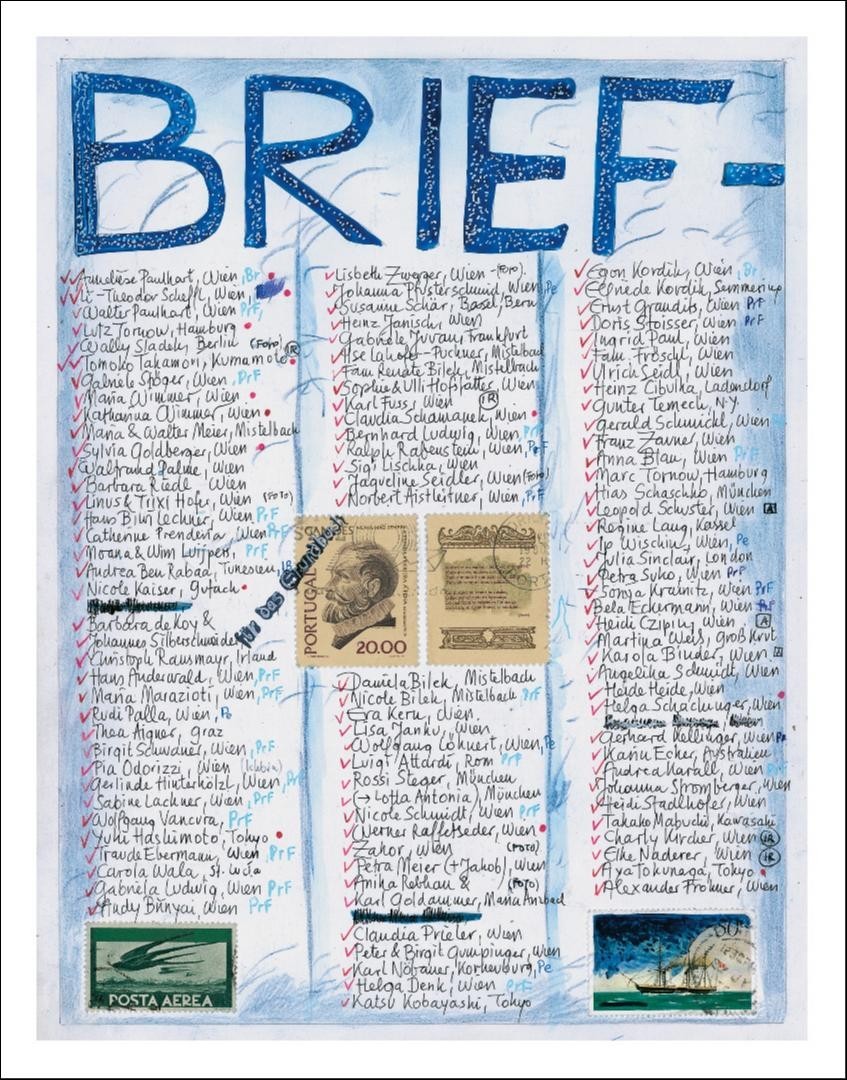 BRIEF-
Anneliese Paulhart, Wien, Br
Li-Theodor Scheffl, Wien,
Walter Paulhart, Wien, PrF,
Lutz Tornow, Hamburg
Wally Sladek, Berlin (FOTO)
Tomoko Takamori, Kumamoto IR
Gabriele Spöger, Wien, PrF
Maria Wimmer, Wien
Katharina Wimmer, Wien
Maria & Walter Meier, Mistelbach
Sylvia Goldberger, Wien
Waltraud Palme, Wien
Barbara Riedl Wien
Linus & Trixi Hofer, Wien (FOTO)
Hans Lechner, Wien PrF
Catherine Prenderia, Wien PrF
Moana & Wim Luijpers, PrF
Andrea Ben Rabaa, Tunesien,
Nicole Kaiser, Gutach
Barbara de Koy &
Johannes Silberschneider
Christoph Rausmayr, Irland
Hans Anderwald, Wien PrF
Maria Marazioti, Wien, PrF
Rudi Palla, Wien,
Thea Aigner, Graz
Birgit Schwaner, Wien PrF
Pia Odorizzi, Wien (Ichbin)
Gerlinde Hinterhölzl, Wien,
Sabine Lachner, Wien, PrF
Wolfgang Vancura, PrF
Yuki Hashimoto, Tokyo
Traude Ebermann, Wien PrF
Carola Wala, St. Lucia
Gabriela Ludwig, Wien PrF
Andy Bünyai, Wien PrF
POSTA AEREA
Lisbeth Zwerger, Wien -(FOTO)
Johanna Pfisterschmid, Wien, Pe
Susanne Schär, Basel, Bern
Heinz Janisch, Wien
Gabriele Juvan, Frankfurt
Ilse Lahofer-Puckner, Mistelbach
Fam. Renate Bilek, Mistelbach
Sophie & Ulli Hofstätter, Wien
Karl Fuss, Wien IR
Claudia Schamanek, Wien
Bernhard Ludwig, Wien, PrF
Ralph Rabenstein, Wien, PrF
Sigi Lischka, Wien
Jaqueline Seidler, Wien (FOTO)
Norbert Aistleitner, Wien, PrF
für das Grundblatt
PORTUGAL
20.00
Daniela Bilek, Mistelbach
Nicole Bilek, Mistelbach PrF
Eva Kern, Wien.
Lisa Janku, Wien
Wolfgang Löhnert, Wien, Pe
Luigi Attardi, Rom PrF
Rossi Steger, München
(→ Lotta Antonia), München
Nicole Schmidt, Wien, PrF
Werner Raffetseder, Wien
Zakor, Wien (FOTO)
Petra Meier (+Jakob), Wien
Anika Rebhau & (FOTO)
Karl Goldammer, Maria Anzbach
Claudia Prieler, Wien
Peter & Birgit Gumpinger, Wien
Karl Nöbauer, Korneuburg, Pe
Helga Denk, Wien PrF
Katsu Kobayashi, Tokyo
Egon Kordik, Wien, Br
Elfriede Kordik, Semmering
Ernst Grandits, Wien PrF
Doris Stoisser, Wien PrF
Ingrid Paul, Wien
Fam. Fröschl, Wien
Ulrich Seidl, Wien
Heinz Cibulka, Ladendorf
Gunter Temech, N.Y.
Gerald Schmickl, Wien
Franz Zauner, Wien
Anna Blau, Wien PrF
Marc Tornow, Hamburg
Hias Schaschko, München
Leopold Schuster, Wien A
Regine Lang, Kassel
Ip Wischin, Wien, Pe
Julia Sinclair, London
Petra Suko, Wien PrF
Sonja Krainitz, Wien PrF
Bela Eckermann, Wien PrF
Heidi Cziping, Wien A
Martina Weis, Groß Krut
Karola Binder, Wien A
Angelika Schmidt, Wien
Heide Heide, Wien
Helga Schachinger, Wien
Gerhard Kellinger, Wien
Karin Ecker, Australien
Andrea Karall, Wien PrF
Johanna Stromberger, Wien
Heidi Stadlhofer, Wien
Takako Mabuchi, Kawasaki
Charly Kircher, Wien IR
Elke Naderer, Wien IR
Aya Tokunaga, Tokyo
Alexander Frohner, Wien
50